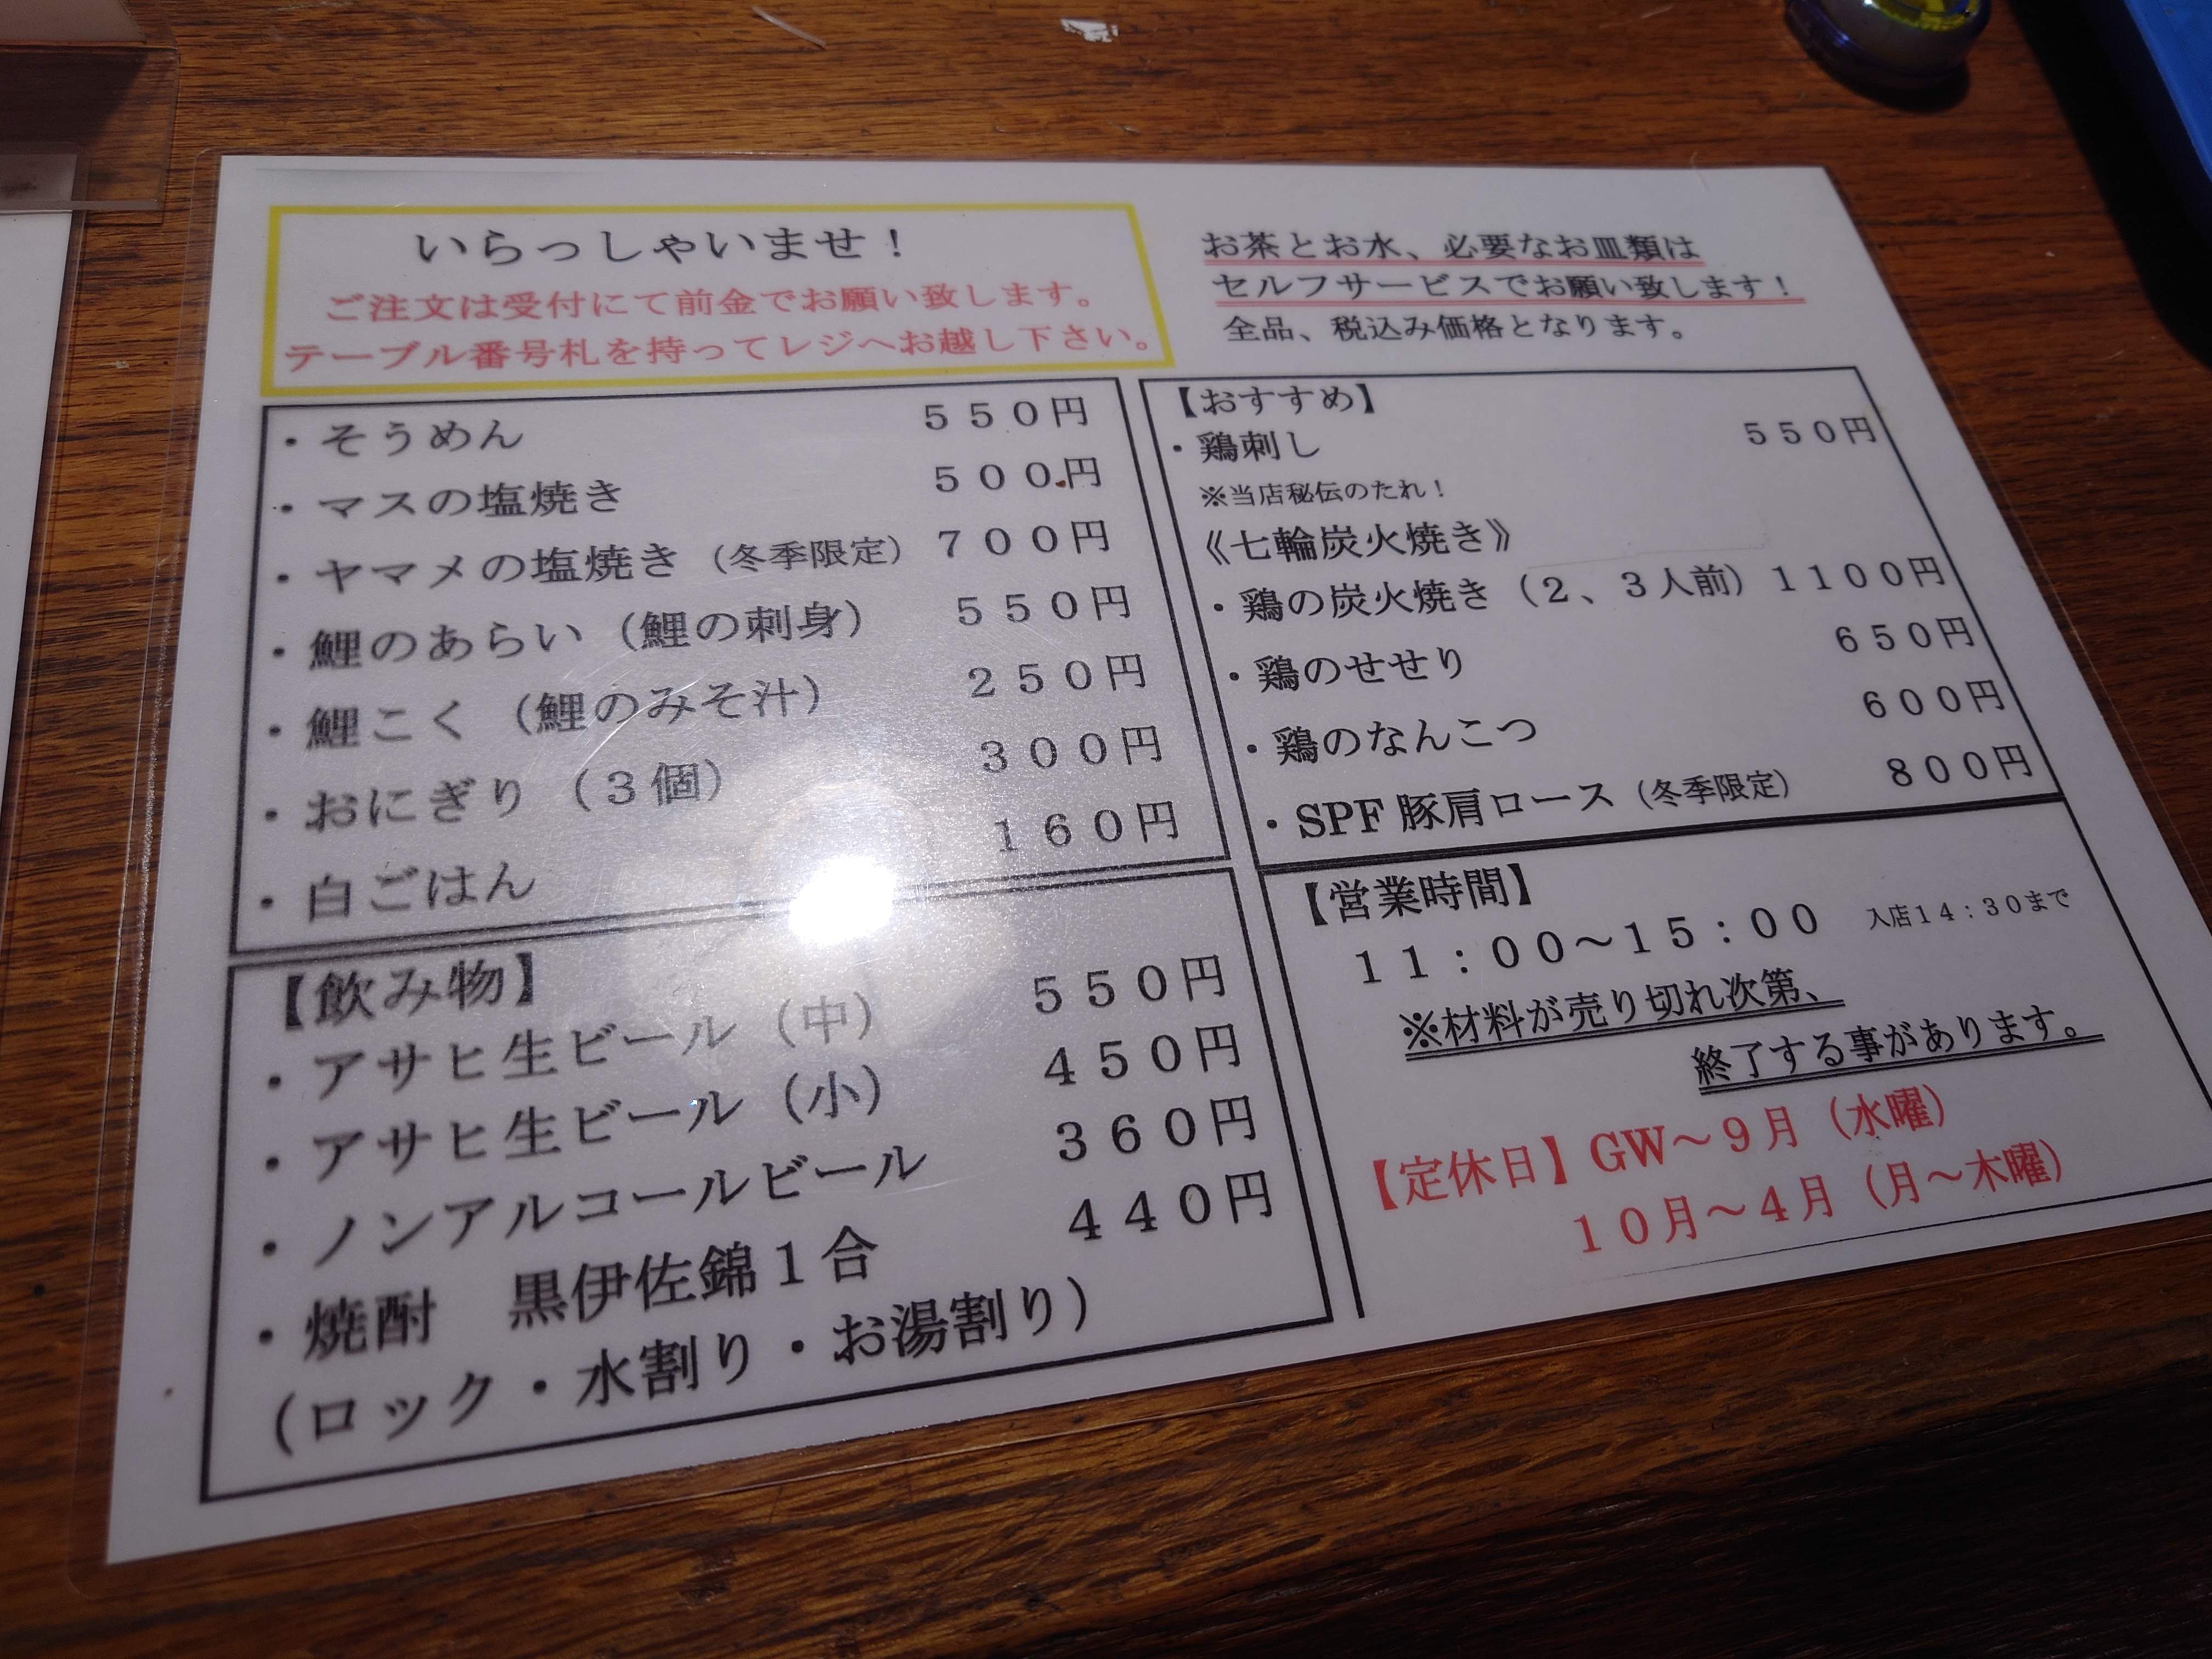 いらっしゃいませ！
ご注文は受付にて前金でお願い致します。
テーブル番号札を持ってレジへお越し下さい。
お茶とお水、必要なお皿類は
セルフサービスでお願い致します！
全品、税込み価格となります。
・そうめん ５５０円
・マスの塩焼き ５００円
・ヤマメの塩焼き（冬季限定） ７００円
・鯉のあらい（鯉の刺身） ５５０円
・鯉こく（鯉のみそ汁） ２５０円
・おにぎり（３個） ３００円
・白ごはん １６０円
【飲み物】
・アサヒ生ビール（中） ５５０円
・アサヒ生ビール（小） ４５０円
・ノンアルコールビール ３６０円
・焼酎　黒伊佐錦１合 ４４０円
（ロック・水割り・お湯割り）
【おすすめ】
・鶏刺し ５５０円
※当店秘伝のたれ！
《七輪炭火焼き》
・鶏の炭火焼き（２、３人前） １１００円
・鶏のせせり ６５０円
・鶏のなんこつ ６００円
・SPF豚肩ロース（冬季限定） ８００円
【営業時間】
１１：００～１５：００ 入店１４：３０まで
※材料が売り切れ次第、
終了する事があります。
【定休日】GW～９月（水曜）
１０月～４月（月～木曜）